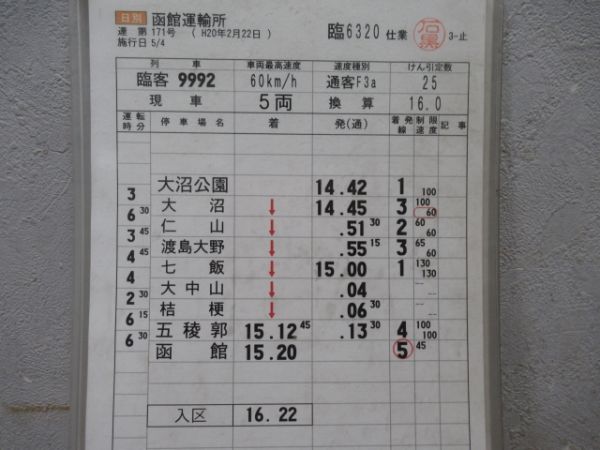 日別 函館運輸所
達 第171号 ( H20年2月22日 )
施行日 5/4
臨6320 仕業 3-止
列 車 車両最高速度 速度種別 けん引定数
臨客 9992 60km/h 通客F3a 25
現 車 5両 換 算 16.0
運転時分 停車場名 着 発(通) 着発線 制限速度 記 事
大沼公園 14.42 1 100
3
大 沼 ↓ 14.45 3 100 60
6 30
仁 山 ↓ .51 30 2 60 60
3 45
渡島大野 ↓ .55 15 3 65 60
4 45
七 飯 ↓ 15.00 1 130 130
4
大 中 山 ↓ .04 -- --
2 30
桔 梗 ↓ .06 30 -- --
6 15
五 稜 郭 15.12 45 .13 30 4 100 100
6 30
函 館 15.20 5 45
入区 16.22